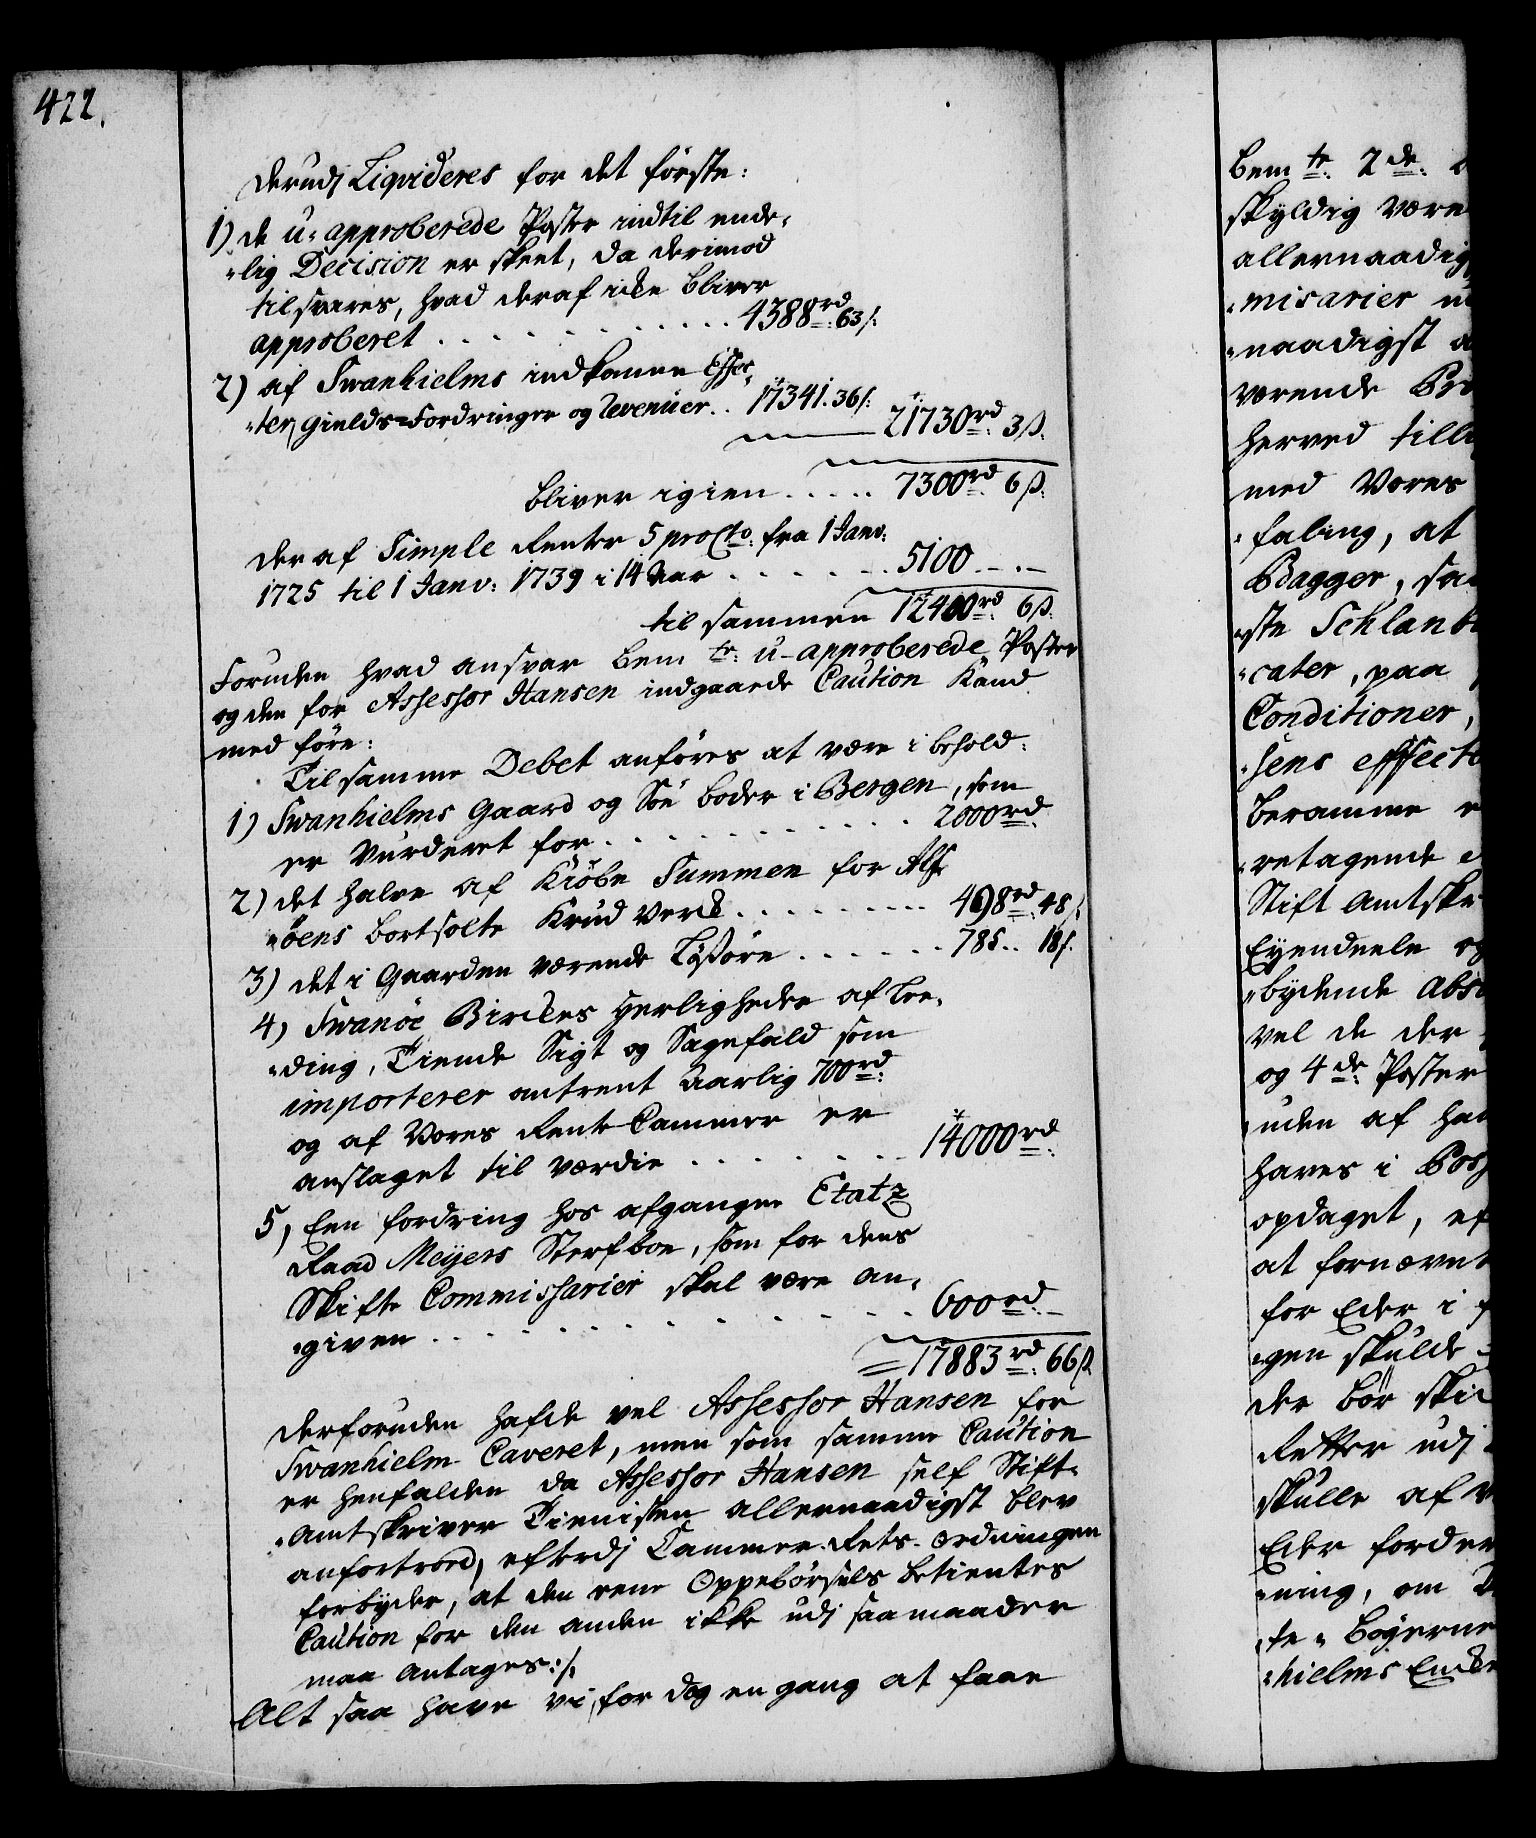 422.
derudj Liqvideres for det förste:
1) de u-approberede Poster indtil ende-
-lig Decision er skeet, da derimod
tilsvares, hvad deraf icke bliver
approberet . . . . . . . . . . . . 4388 rd 63 s:
2) af Swanhielms indkomne Effec-
-ter, Gields-Fordringer og Revenüer . . 17341. 36 s: 21730 rd 3 s.
bliver igien . . . . . 7300 rd 6 s.
der af Simple Renter 5 pro Cto: fra 1 Janv:
1725 til 1 Janv: 1739 i 14 Aar . . . . . . . 5100 - . -
til sammen 12400 rd 6 s.
Foruden hvad ansvar bem te: u-approberede Poster
og den for Assessor Hansen indgaaede Caution Kand
med före:
Til samme Debet anföres at være i behold:
1) Swanhielms Gaard og Söe boder i Bergen, som
er Vurderet for . . . . . . . . . . . 2000 rd.
2) det halve af Kiöbe Summen for Alf-
-öens bortsolte Krud Verck . . . . . . . . . 498 rd. 48 s.
3) det i Gaarden værende Lösöre . . . . . . 785 . . 18 s.
4) Swanöe Birckes Herligheder af Lee-
-ding, Tiende Sigt og Sagefald som
importerer omtrent Aarlig 700 rd:
og af Vores Rente Cammer er
anslaget til værdie . . . . . . . . 14000 rd.
5) Een fordring hos afgangne Etatz
Raad Meÿers Sterfboe, som for dens
Skifte Commissarier skal være an-
-given . . . . . . . . . . . . . . 600 rd. -
17883 rd. 66 s.
Derforuden hafde vel Assessor Hansen for
Swanhielm Caveret, men som samme Caution
er henfalden da Assessor Hansen self Stift-
-Amtskriver Tienisten allernaadigst blev
anfortroed, efterdj Cammer-Rets-ordningen
forbyder, at den eene Oppebörsels betientes
Caution for den anden ikke udj saa maader
maa antages:/.
Alt saa have vi, for dog en gang at faae
bem te: 2 de:
skyldig være
allernaadig
-misarier
-naadigst
værende
herved
med Vores
-faling, at
Bagger,
-ste
-cater, paa
Conditioner,
-sens
beramme
-retagende
Stift Amtskr
Eyendeele
-bydende
vel de der
og 4 de: Poster
uden af
haves i
opdaget,
at fornævnt
for Eder i
-gen skulde
der bör
Retter udj
skulle af
Eder
-ning, om
-te - Böyerne
-hielms